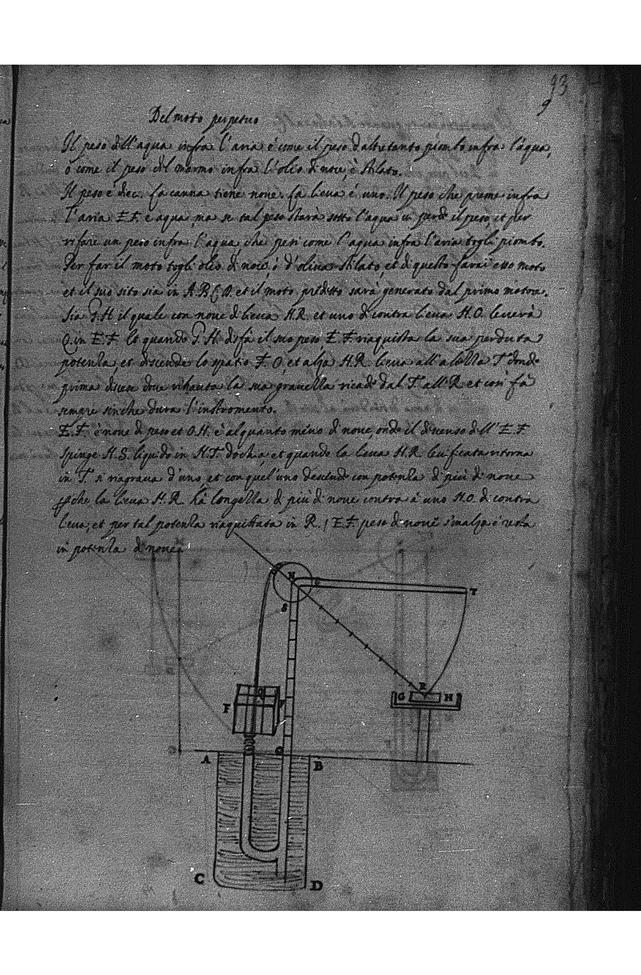 93
9
Del moto perpetuo
Il peso dell'aqua infra l'aria è come il peso d'altretanto piombo infra l'aqua,
o come il peso del marmo infra l'olio di noce è Stilato.
Il peso è dieci. la canna tiene nove. la leva è uno. Il peso che preme infra
l'aria E.F. è aqua, ma se tal peso starà sotto l'aqua ei perde il peso, et per
rifare un peso infra l'aqua che pesi come l'aqua infra l'aria togli piombo.
Per far il moto togli olio di noce, o d'oliva Stilato et di questo farai esso moto
et il suo sito sia in A.B.C.D. et il moto predetto sarà generato dal primo motore.
Sia G.H. il quale con nove di lieva H.R. et uno di contra lieva H.O. leverà
O. in E.F. lo quando G.H. disfà il suo peso E.F. riaquista la sua perduta
potentia et discende lo spatio F.O. et alza H.R. lieva all'altezza T donde
prima discese dove rifiuta la sua gravezza ricade dal T. all'R. et così fà
sempre sinche dura l'instromento.
E.F. è nove di peso et O.H. è alquanto meno di nove, onde il discenso dell'E.F.
spinge H.S. liquido in H.T. et quando la leva H.R. leuficata ritorna
in T. si riagrava d'uno et con quel'uno descende con potentia di più di nove
che la lieva H.R. hà longezza di più di nove contra à uno H.O. di contra
lieva, et per tal potentia riaquistata in R. E.F. peso di nove s'inalza è resta
in potentia di nove
N
S
T
R
G H
F
O
A B
C D